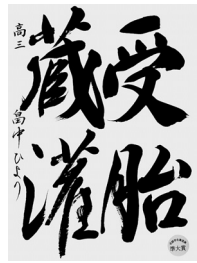 受胎
蔵灌
高三 畠中ひより